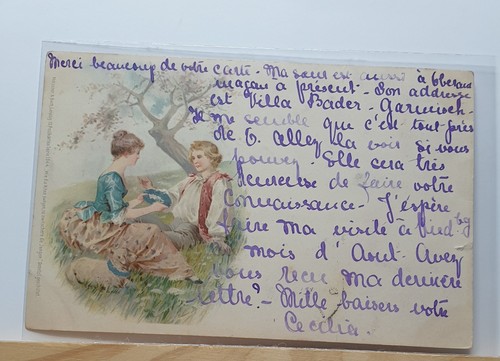 Merci beaucoup de votre carte - Ma sœur est aussi à Oberam
magau a présent - Son addresse
est Villa Bader - Garmisch
Je me semble que c'est tout près
de O. Allez la voir si vous
pouvez Elle sera très
heureuse de faire votre
Connaissance - J'espère
faire ma visite à
mois d'Aout. Avez
vous recu ma derniere
lettre? - Mille baisers votre
Cecilia.